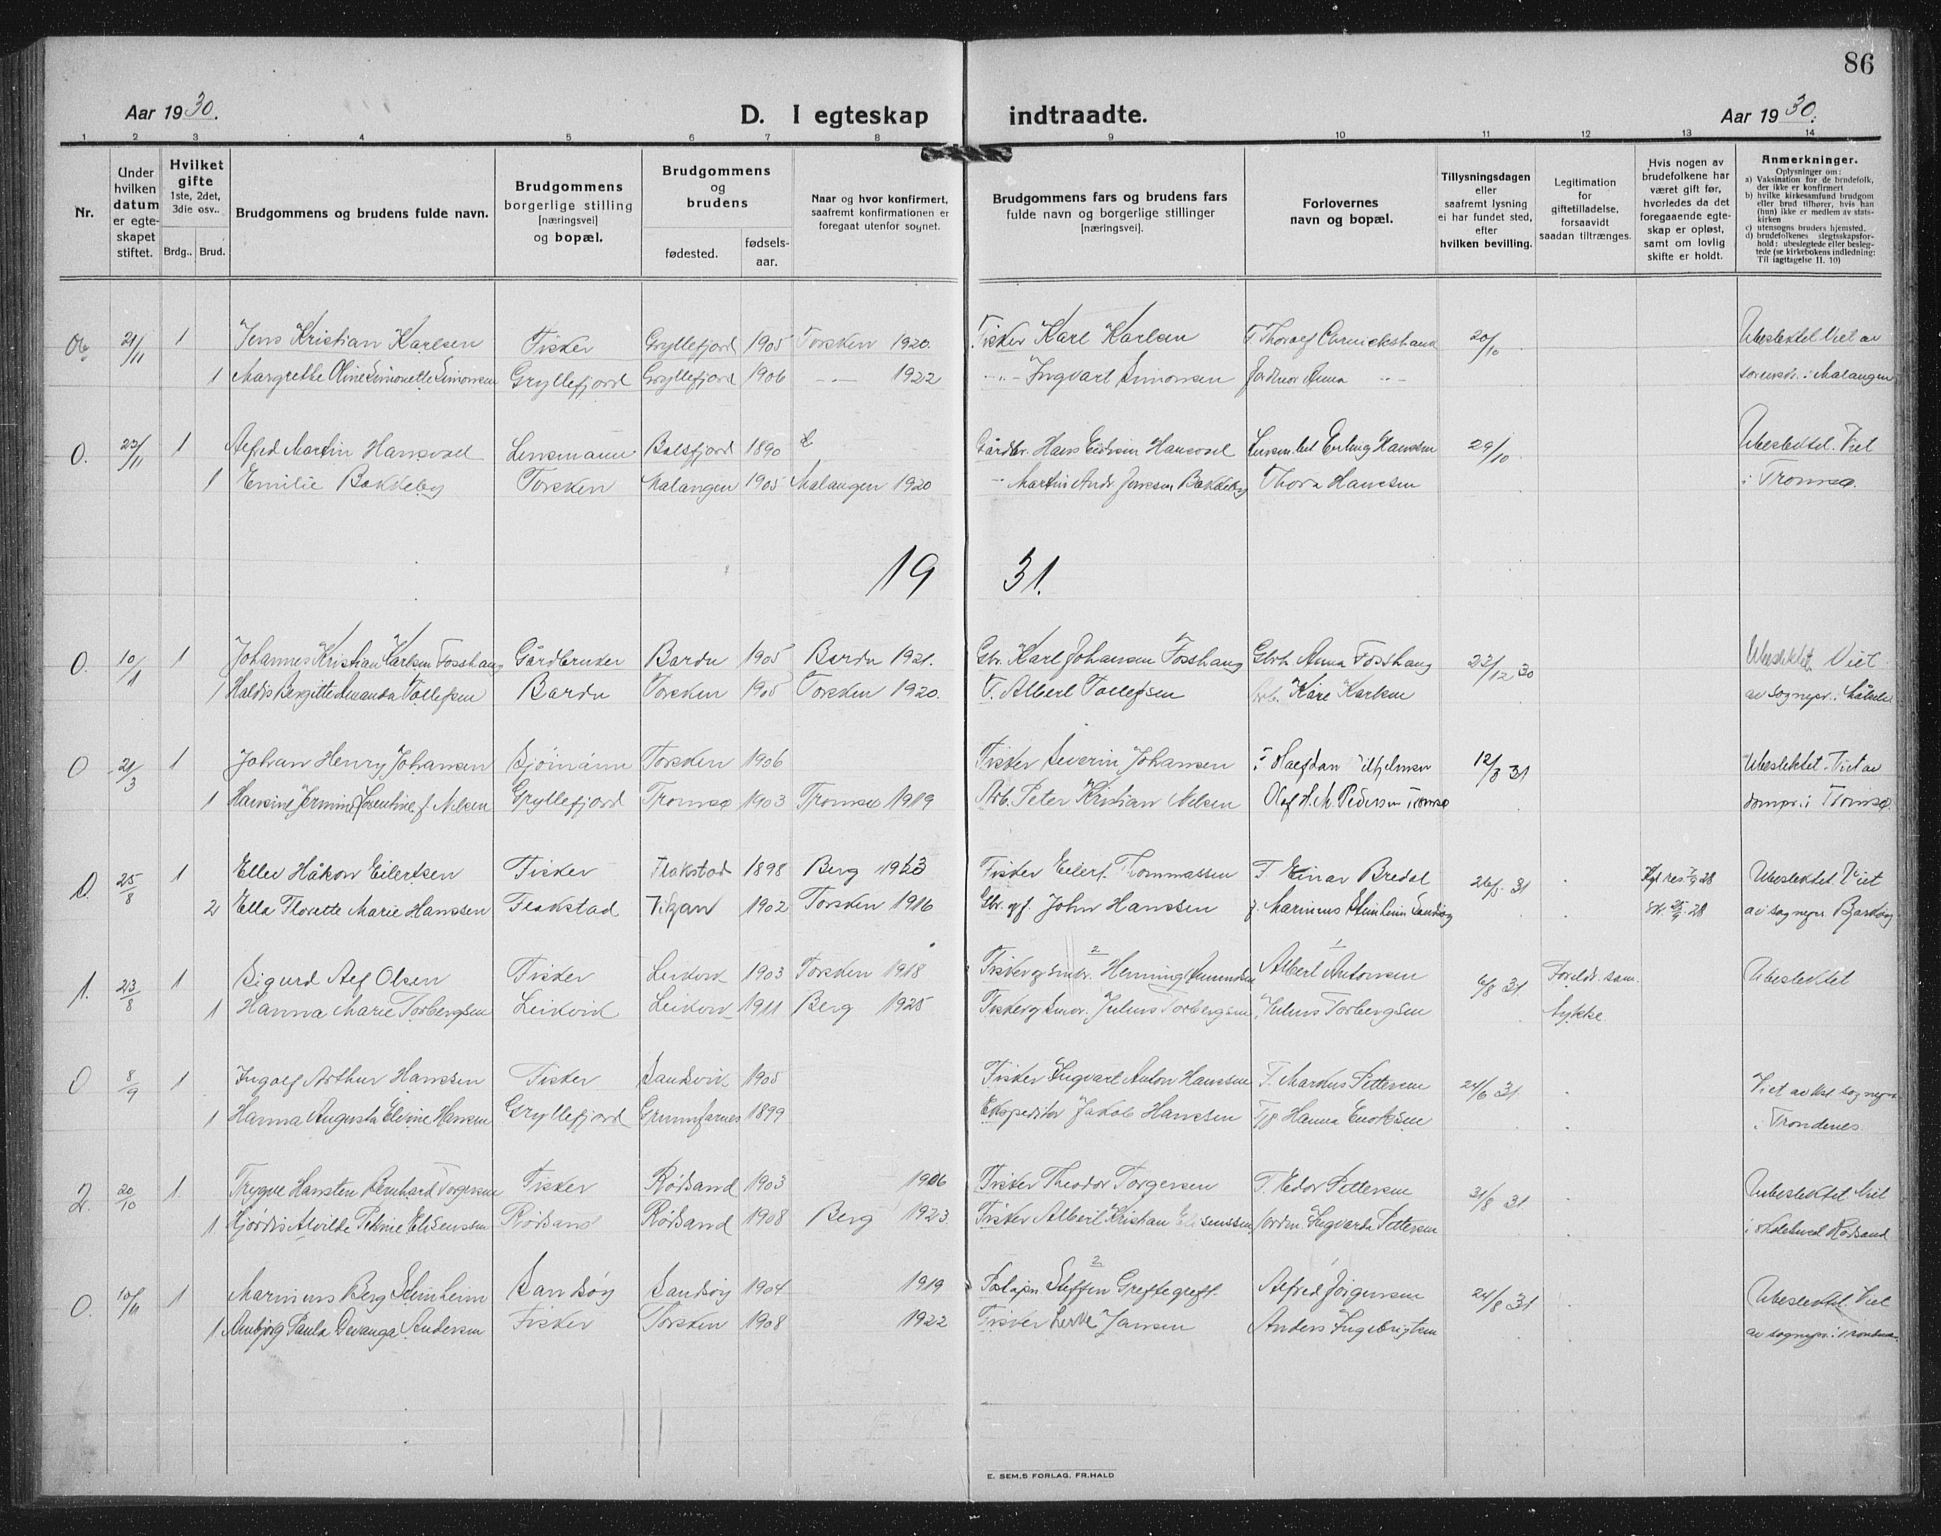 86
Aar 1930.
D. I egteskap indtraadte.
Aar 1930.
1 2 3 4 5 6 7 8 9 10 11 12 13 14
Nr.
Under hvilken datum er egteskapet stiftet.
Hvilket gifte 1ste, 2det, 3die osv..
Brdg.. Brud.
Brudgommens og brudens fulde navn.
Brudgommens borgerlige stilling [næringsvei] og bopæl.
Brudgommens og brudens
fødested.
fødsels-aar.
Naar og hvor konfirmert, saafremt konfirmationen er foregaat utenfor sognet.
Brudgommens fars og brudens fars fulde navn og borgerlige stillinger [næringsvei].
Forlovernes navn og bopæl.
Tillysningsdagen eller saafremt lysning ei har fundet sted, efter hvilken bevilling.
Legitimation for giftetilladelse, forsaavidt saadan tiltrænges.
Hvis nogen av brudefolkene har været gift før, hvorledes da det foregaaende egteskap er opløst, samt om lovlig skifte er holdt.
Anmerkninger.
Oplysninger om:
a) Vaksination for de brudefolk, der ikke er konfirmert
b) hvilke kirkesamfund brudgom eller brud tilhører, hvis han (hun) ikke er medlem av statskirken
c) utensogns bruders hjemsted.
d) brudefolkenes slegtsskapsforhold: ubeslegtede eller beslegtede (se kirkebokens indledning: Til iagttagelse II. 10)
21/11 1 Jens Kristian Karlsen Fisker Gryllefjord 1905 Torsken 1920. Fisker Karl Karlsen 20/10 Ubeslektet Viet av
1 Margrethe Oline Simonette Simonsen Gryllefjord Gryllefjord 1906 -"- 1922 -"- Ingvart Simonsen Jordmor Anna -"- sorensk. i Malangen
0. 22/11 1 Alfred Martin Hansvoll Lensmann Balsfjord 1890 Gårdbr. Hans Hansvoll Erling Hansen 29/10 Ubeslektet. Viet
1 Emilie Bakkeby Torsken Malangen 1905 Malangen 1920 -"- Martin Andr. Jenssen Bakkeby Thora Hansen i Tromsø.
1931.
0. 10/1 1 Johannes Kristian Karlsen Fosshaug Gårdbruker Bardu 1905 Bardu 1921. Gbr. Karl Johansen Fosshaug Anna Fosshaug 22/12 30 Ubeslektet Viet
1 Haldis Bergitte Amanda Tollefsen Bardu Torsken 1905 Torsken 1920. F. Albert Tollefsen Kåre Karlsen av sognepr. i Målselv
0 21/3 1 Johan Henry Johansen Sjømann Torsken 1906 Fisker Severin Johansen Halfdan Vilhelmsen 12/3 31 Ubeslektet. Viet av
1 Hansine Jermine Lorentine f. Nilsen Gryllefjord Tromsø 1903 Tromsø 1919 Arb. Peter Kristian Nilsen Olaf H. M. Pedersen Tromsø dompr. i Tromsø.
0. 25/8 1 Eller Håkon Eilertsen Fisker Flakstad 1898 Berg 1913 Fisker Eilert Thommassen F. Einar Bredal 26/5 31 Kgl res 28 Ubeslektet. Viet
2 Ella Florette Marie Hanssen Flakstad 1902 Torsken 1916 Gbr. og f. John Hanssen f. Marinius Steinheim Sandsøy Sk. 28 av sognepr. Bjarkøy
1. 23/8 1 Sigurd Alf Olsen Fisker Leikvik 1903 Torsken 1918 Fisker og småbr. Henning Amundsen 2 Albert Antonsen 1 6/8 31 Foreldr. sam- Ubeslektet
1 Hanna Marie Torbergsen Leikvik Leikvik 1911 Berg 1925 Fisker og småbr. Julius Torbergsen Julius Torbergsen tykke.
0 8/9 1 Ingolf Arthur Hanssen Fisker Sandsvik 1905 Fisker Ingvart Anton Hanssen F. Markus Pettersen 24/6 31 Viet av kst sognepr.
1 Hanna Augusta Elvine Hansen Gryllefjord Grunnfarnes 1899 Ekspeditør Jakob Hanssen Hanna Enoksen i Trondenes.
2. 20/10 1 Trygve Hansten Reinhard Torgersen Fisker Rödsand 1903 1906 Fisker Theodor Torgersen F. Edor Pettersen 31/8 31 Ubeslektet Viet
1 Hjørdis Alvilde Petrine Elisenssen Rödsand Rödsand 1908 Berg 1923. Fisker Albert Kristian Elisenssen Ingvarda Pettersen i skolehus Rödsand
0. 10/11 1 Marinius Berg Steinheim Sandsøy Sandsøy 1904 1919 Steffen Greftegreft. 2 Alfred Jørgensen 24/8 31 Ubeslektet Viet
1 Ambjørg Paula Devanga Andersen Fisker Torsken 1908 1922 Fisker Jansen Anders Ingebrigtsen av sognepr. i Trondenes
E. SEM,S FORLAG, FR.HALD